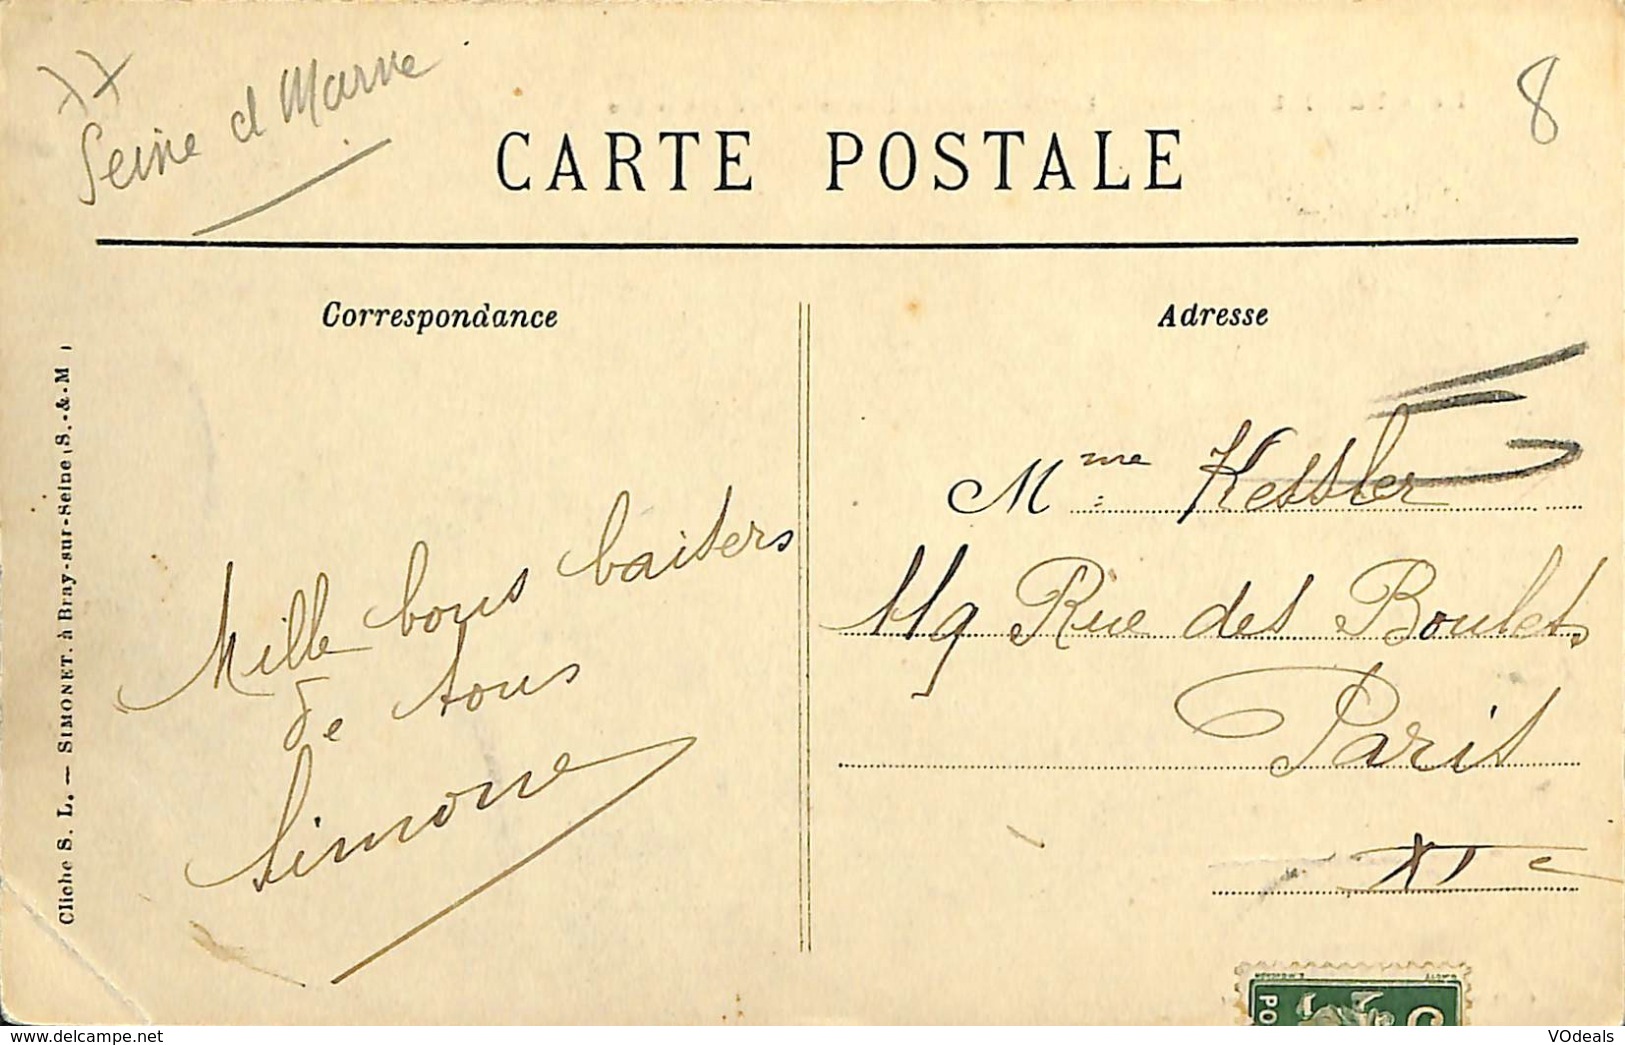 77
Seine et Marne
8
CARTE POSTALE
Correspondance
Adresse
Cliche S. L. — SIMONET. à Bray-sur-Seine (S.-&-M )
Mille bons baisers
de tous
Simone
Mme Kessler
119 Rue des Boulets
Paris
XIe
VOdeals